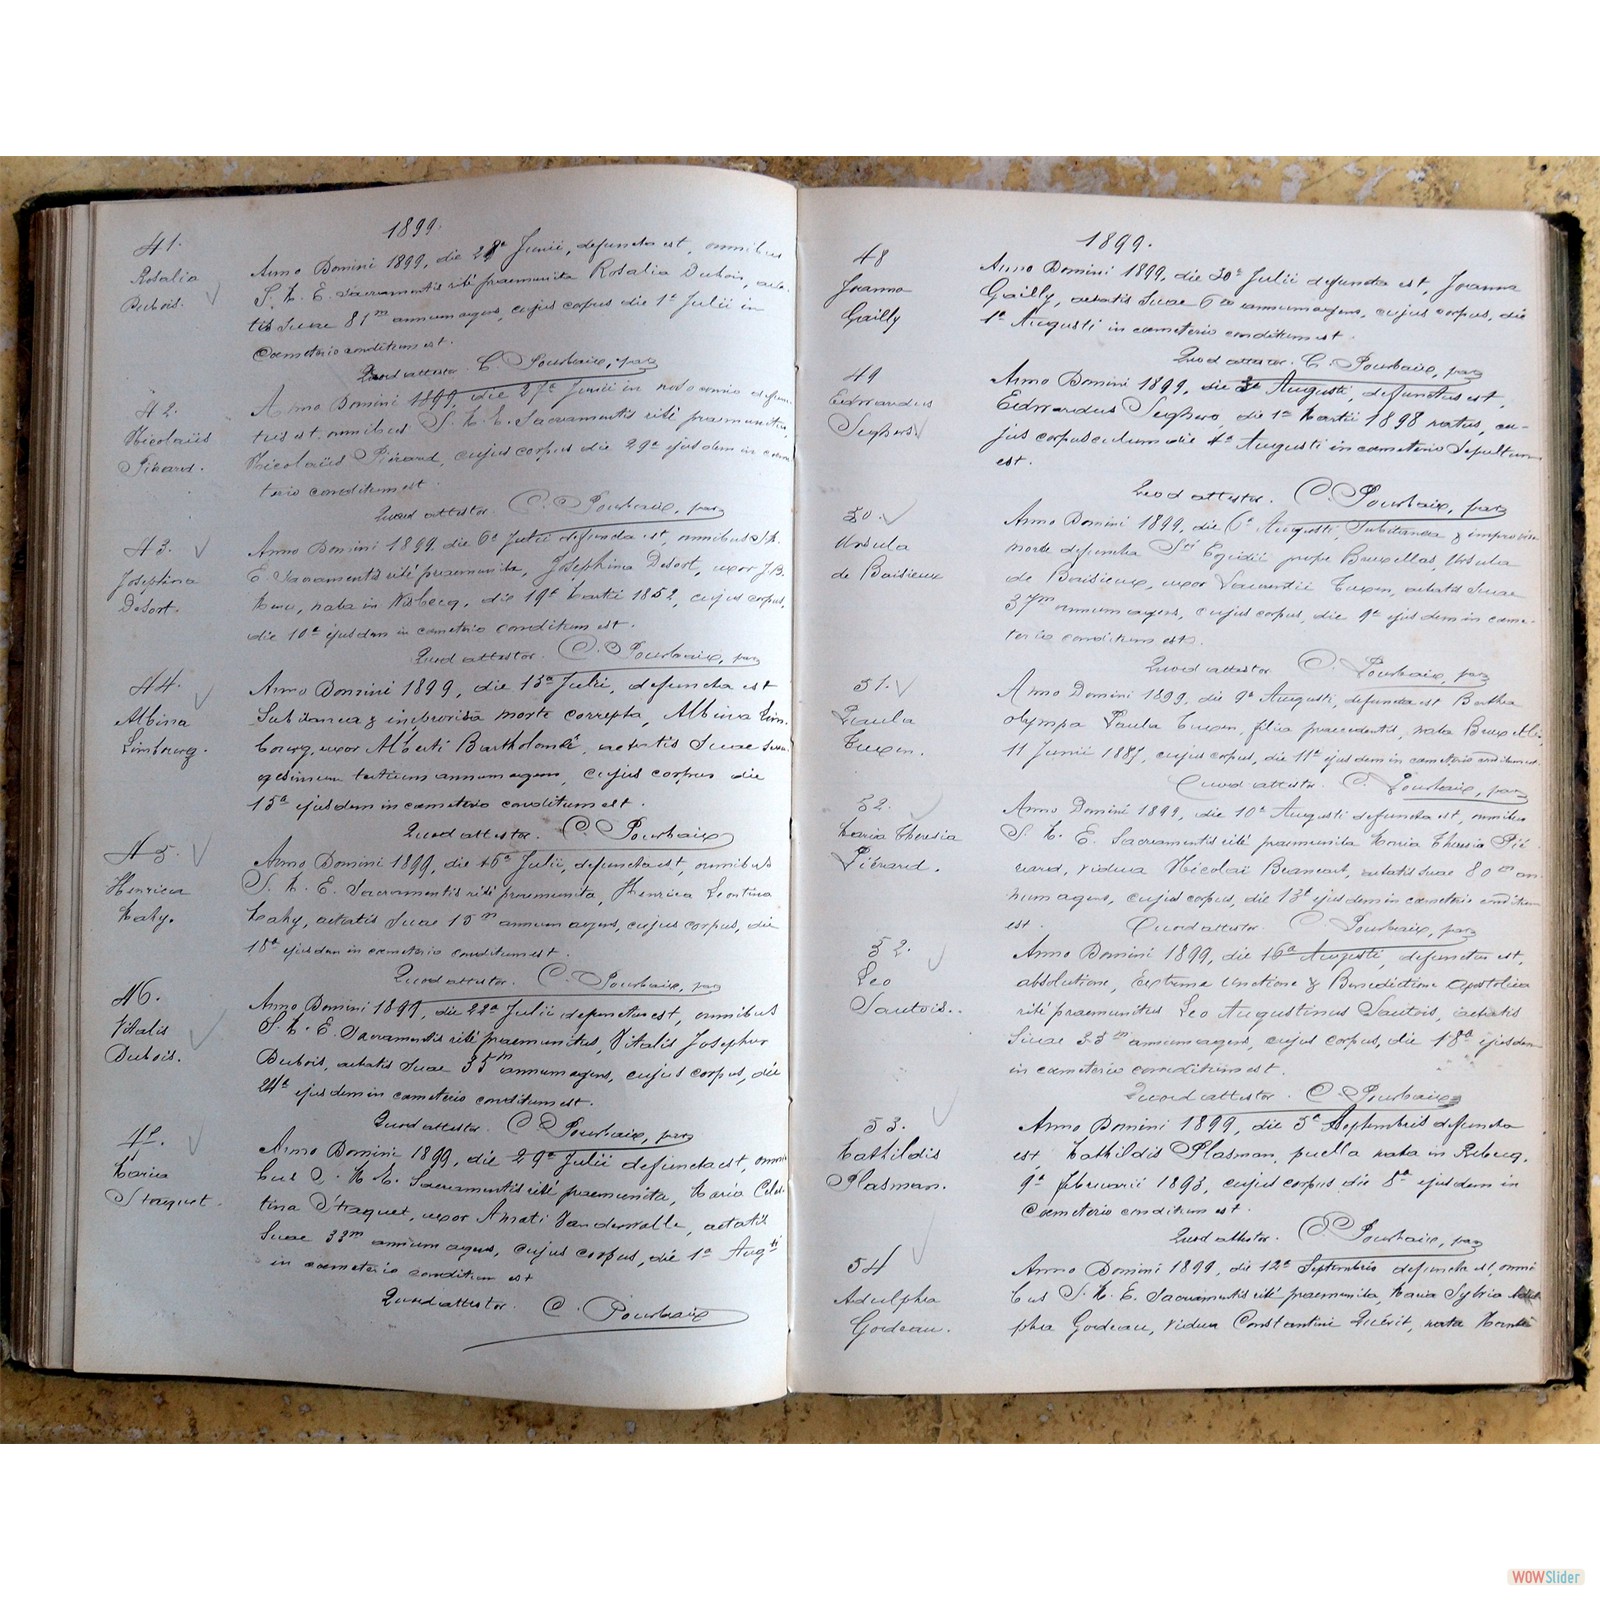 1899.
41.
Rosalia
Dubois.
Anno Domini 1899, die Junii, defuncta est, omnibus
S. M. E. Sacramentis rité praemunita Rosalia Dubois, aeta-
tis suae 81m annum agens, cujus corpus die 1a Julii in
Coemeterio conditum est.
Quod attestor. C. Pourbaix, par
42.
Nicolaüs
Pierard.
Anno Domini 1899, die 27a Junii in nosocomio defunc-
tus est, omnibus S. M. E. Sacramentis rité praemunitus,
Nicolaüs Piérard, cujus corpus die 29a ejusdem in coeme-
terio conditum est.
Quod attestor. C. Pourbaix, par
43.
Josephina
Desort.
Anno Domini 1899, die 6a Julii defuncta est, omnibus S. M.
E. Sacramentis rité praemunita, Josephina Desort, uxor J. B.
nata in Rebecq, die 19a Martii 1852, cujus corpus,
die 10a ejusdem in cameterio conditum est.
Quod attestor. C. Pourbaix, par
44.
Albina
Limbourg.
Anno Domini 1899, die 13a Julii, defuncta est
Subitanea & improvisa morte correpta, Albina Lim-
bourg, uxor Alberti Bartholomé, aetatis suae
gesimum tertium annum agens, cujus corpus die
15a ejusdem in cameterio conditum est.
Quod attestor. C. Pourbaix
45.
Henrica
Mahy.
Anno Domini 1899, die 16a Julii, defuncta est, omnibus
S. M. E. Sacramentis rité praemunita, Henrica Leontina
Mahy, aetatis suae 15m annum agens, cujus corpus, die
18a ejusdem in cameterio conditum est.
Quod attestor. C. Pourbaix, par
46.
Vitalis
Dubois.
Anno Domini 1899, die 22a Julii defunctus est, omnibus
S. M. E. Sacramentis rité praemunitus, Vitalis Josephus
Dubois, aetatis suae 35m annum agens, cujus corpus, die
24a ejusdem in cameterio conditum est.
Quod attestor. C. Pourbaix, par
47.
Maria
Straquet.
Anno Domini 1899, die 29a Julii defuncta est, omni-
bus S. M. E. Sacramentis rité praemunita, Maria Celes-
tina Straquet, uxor Amati Vanderwalle, aetatis
suae 33m annum agens, cujus corpus, die 1a Augti
in coemeterio conditum est
Quod attestor. C. Pourbaix
1899.
48
Joanna
Gailly
Anno Domini 1899, die 30a Julii defuncta est, Joanna
Gailly, aetatis suae 6 annum agens, cujus corpus, die
1a Augusti in cameterio conditum est.
Quod attestor. C. Pourbaix, par
49
Edwardus
Seghers
Anno Domini 1899, die Augusti, defunctus est,
Edwardus Seghers, die 1a Martii 1898 natus, cu-
jus corpusculum die 4a Augusti in cameterio sepultum
est.
Quod attestor. C. Pourbaix, par
50.
Ursula
de Baisieux
Anno Domini 1899, die 6a Augusti, Subitanea & improvisa
morte defuncta Sti Egidii prope Bruxellas, Ursula
de Baisieux, uxor Laurentii Tuxen, aetatis suae
37m annum agens, cujus corpus, die 9a ejusdem in came-
terio conditum est.
Quod attestor C. Pourbaix, par
51.
Paula
Tuxen.
Anno Domini 1899, die 9a Augusti, defuncta est Bertha
Olympa Paula Tuxen, filia praecedentis, nata Bruxellis,
11 Junii 1887, cujus corpus, die 11a ejusdem in cameterio conditum est.
Quod attestor C. Pourbaix, par
52.
Maria Theresia
Piérard.
Anno Domini 1899, die 10a Augusti defuncta est, omnibus
S. M. E. Sacramentis rité praemunita Maria Theresia Pié-
rard, vidua Nicolaï Brancart, aetatis suae 80m an-
num agens, cujus corpus, die 13a ejusdem in cameterio conditum
est. Quod attestor C. Pourbaix, par
52.
Leo
Sautois.
Anno Domini 1899, die 16a Augusti, defunctus est,
absolutione, Extrema Unctione & Benedictione apostolica
rité praemunitus Leo Augustinus Sautois, aetatis
suae 33m annum agens, cujus corpus, die 18a ejusdem
in cameterio conditum est.
Quod attestor. C. Pourbaix
53.
Mathildis
Plasman.
Anno Domini 1899, die 5a Septembris defuncta
est Mathildis Plasman, puella nata in Rebecq,
9a februarii 1893, cujus corpus die 8a ejusdem in
Coemeterio conditum est.
Quod attestor. C. Pourbaix, par
54
Adulphia
Godeau.
Anno Domini 1899, die 12a Septembris defuncta est, omni
bus S. M. E. Sacramentis rité praemunita, Maria Sylvia
phia Godeau, vidua Constantini Quérit, nata
WOWSlider